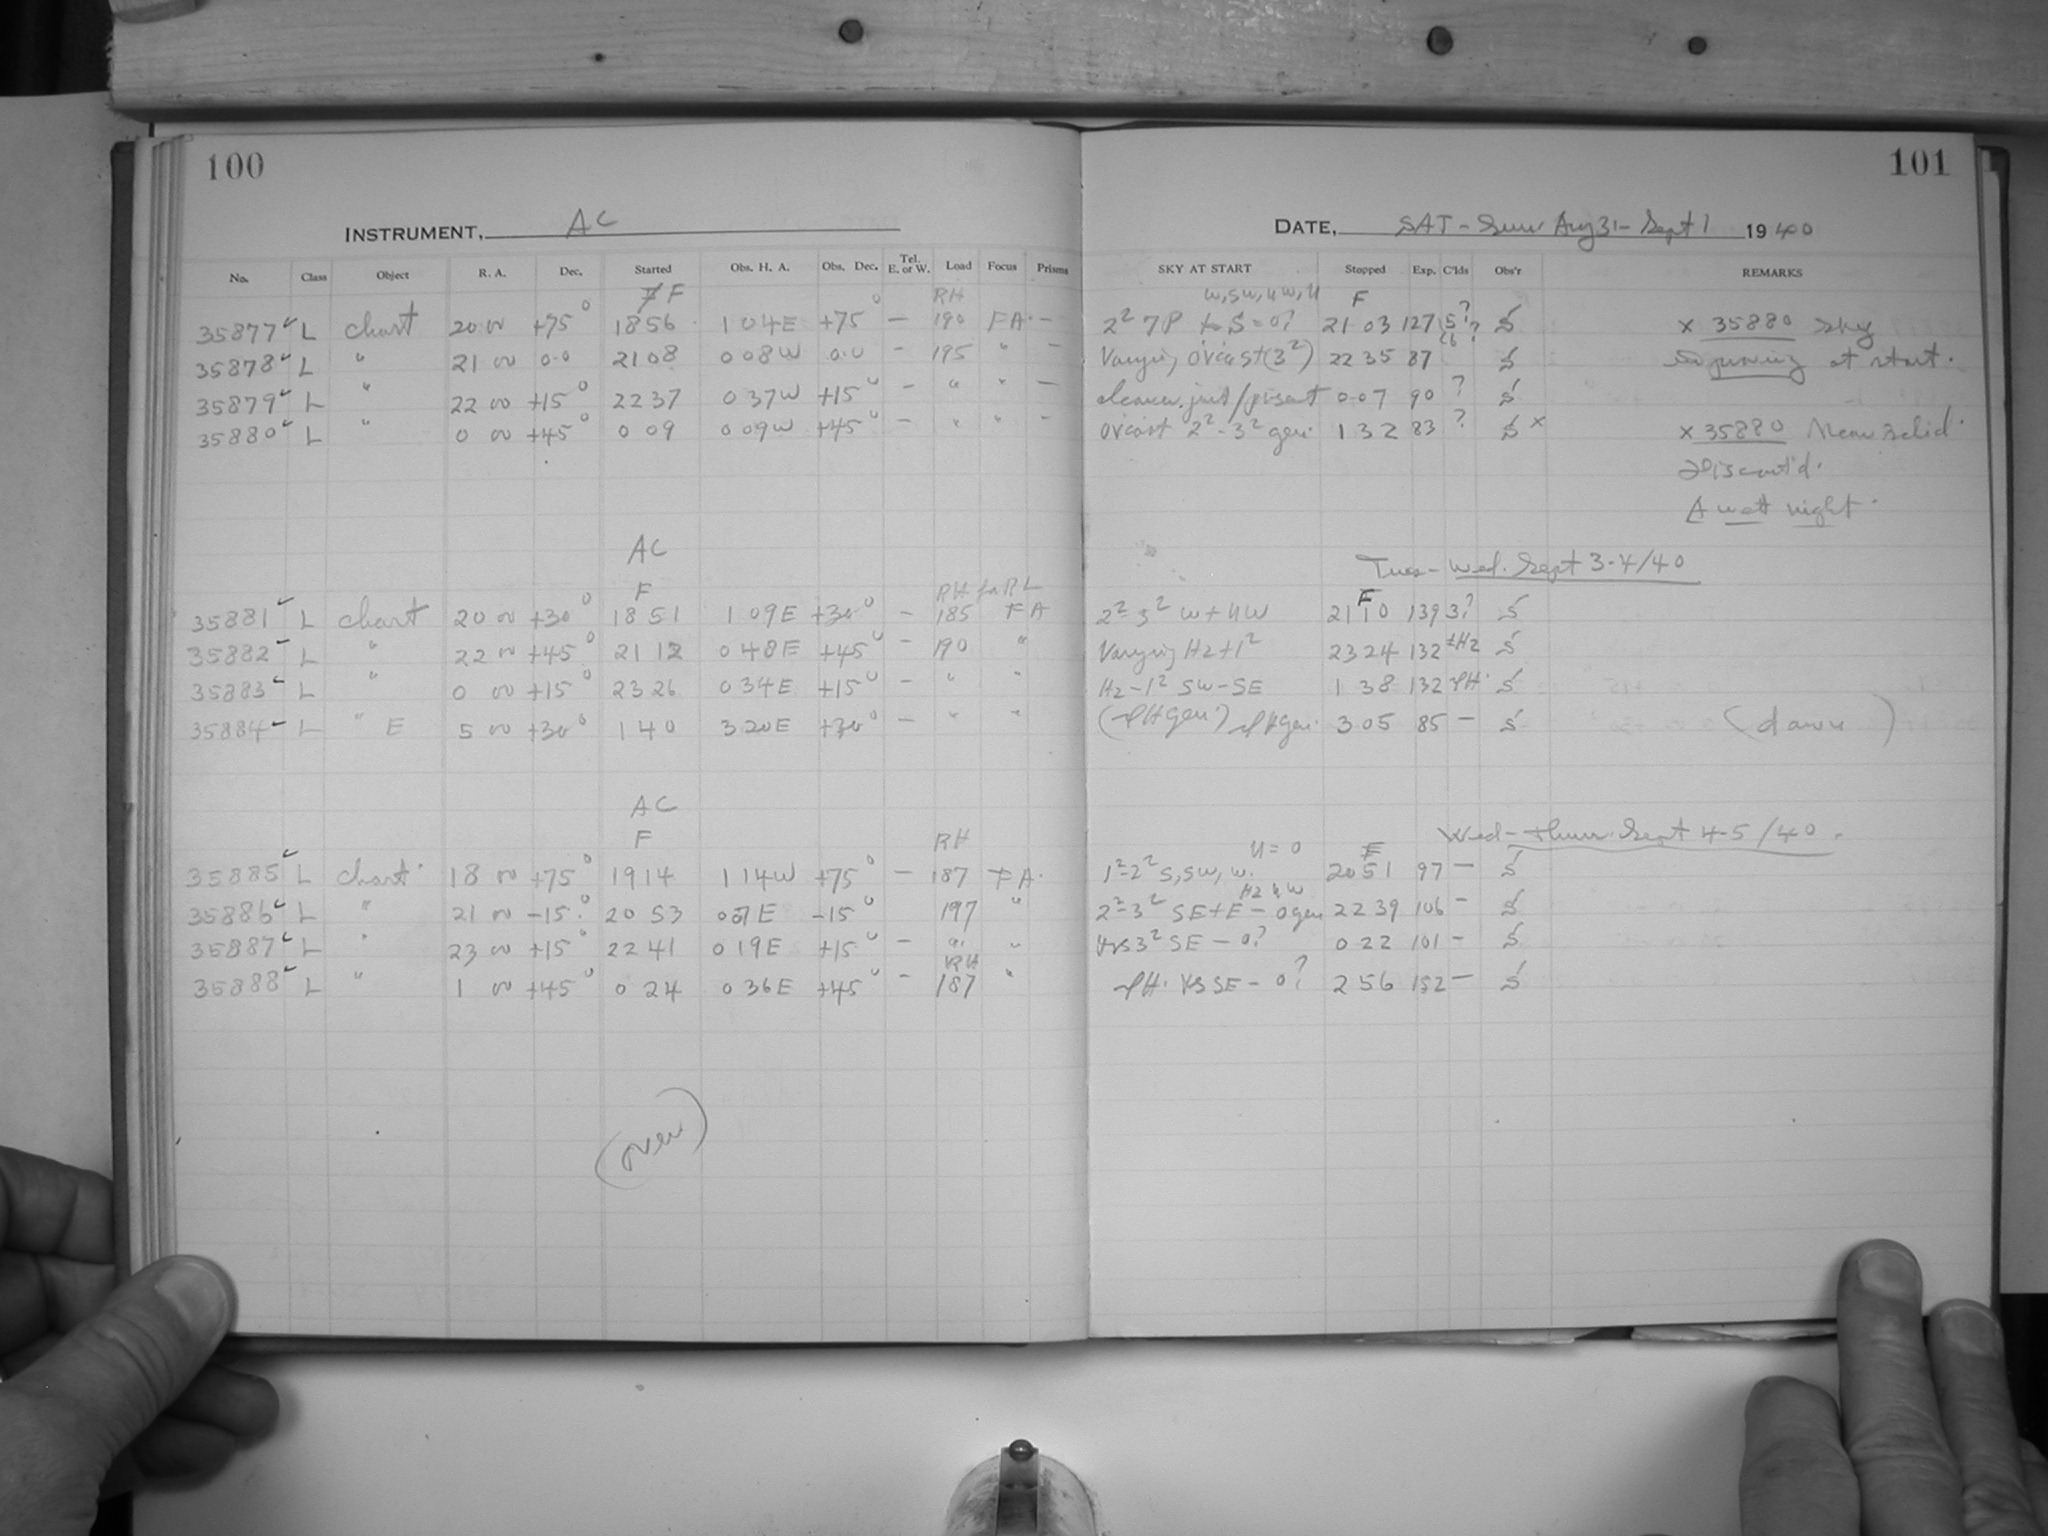 100
INSTRUMENT, AC
No. Class Object R. A. Dec. Started Obs. H. A. Obs. Dec. Tel. E. or W. Load Focus Prisms
F RH
35877 L chart 20 00 +75° 18 56 1 04E +75° — 190 FA. —
35878 L " 21 00 0.0 21 08 0 08W 0.0 — 195 " —
35879 L " 22 00 +15° 22 37 0 37W +15° — " " —
35880 L " 0 00 +45° 0 09 0 09W +45° — " " —
AC
F RH for RL
35881 L chart 20 00 +30° 18 51 1 09E +30° — 185 FA
35882 L " 22 00 +45° 21 12 0 48E +45° — 190 "
35883 L " 0 00 +15° 23 26 0 34E +15° — " "
35884 L " E 5 00 +30° 1 40 3 20E +30° — " "
AC
F RH
35885 L chart 18 00 +75° 19 14 1 14W +75° — 187 FA.
35886 L " 21 00 -15° 20 53 0 07E -15° 197 "
35887 L " 23 00 +15° 22 41 0 19E +15° — " "
RH
35888 L " 1 00 +45° 0 24 0 36E +45° — 187 "
(over)
101
DATE, SAT - Sun Aug 31 - Sept 1 1940
SKY AT START Stopped Exp. C'lds Obs'r REMARKS
W, SW, NW, N F
2² 7P to S = 0? 21 03 127 5? S × 35880 sky
Varying ov'cast (3²) 22 35 87 S improving at start.
just/present 0 07 90 ? S
Ov'cast 2²-3² gen. 1 32 83 ? S × × 35880 Near solid.
Discont'd.
A wet night.
Tues - Wed. Sept 3-4/40
F
2²-3² W + NW 21 10 139 3? S
Varying Hz + 1² 23 24 132 Hz S
Hz - 1² SW - SE 1 38 132 S
3 05 85 — S (dawn)
Wed - Thur. Sept 4-5/40.
N = 0 F
1²-2² S, SW, W. 20 51 97 — S
Hz NW
2²-3² SE + E - 0 gen 22 39 106 — S
3² SE - 0? 0 22 101 — S
SE - 0? 2 56 152 — S